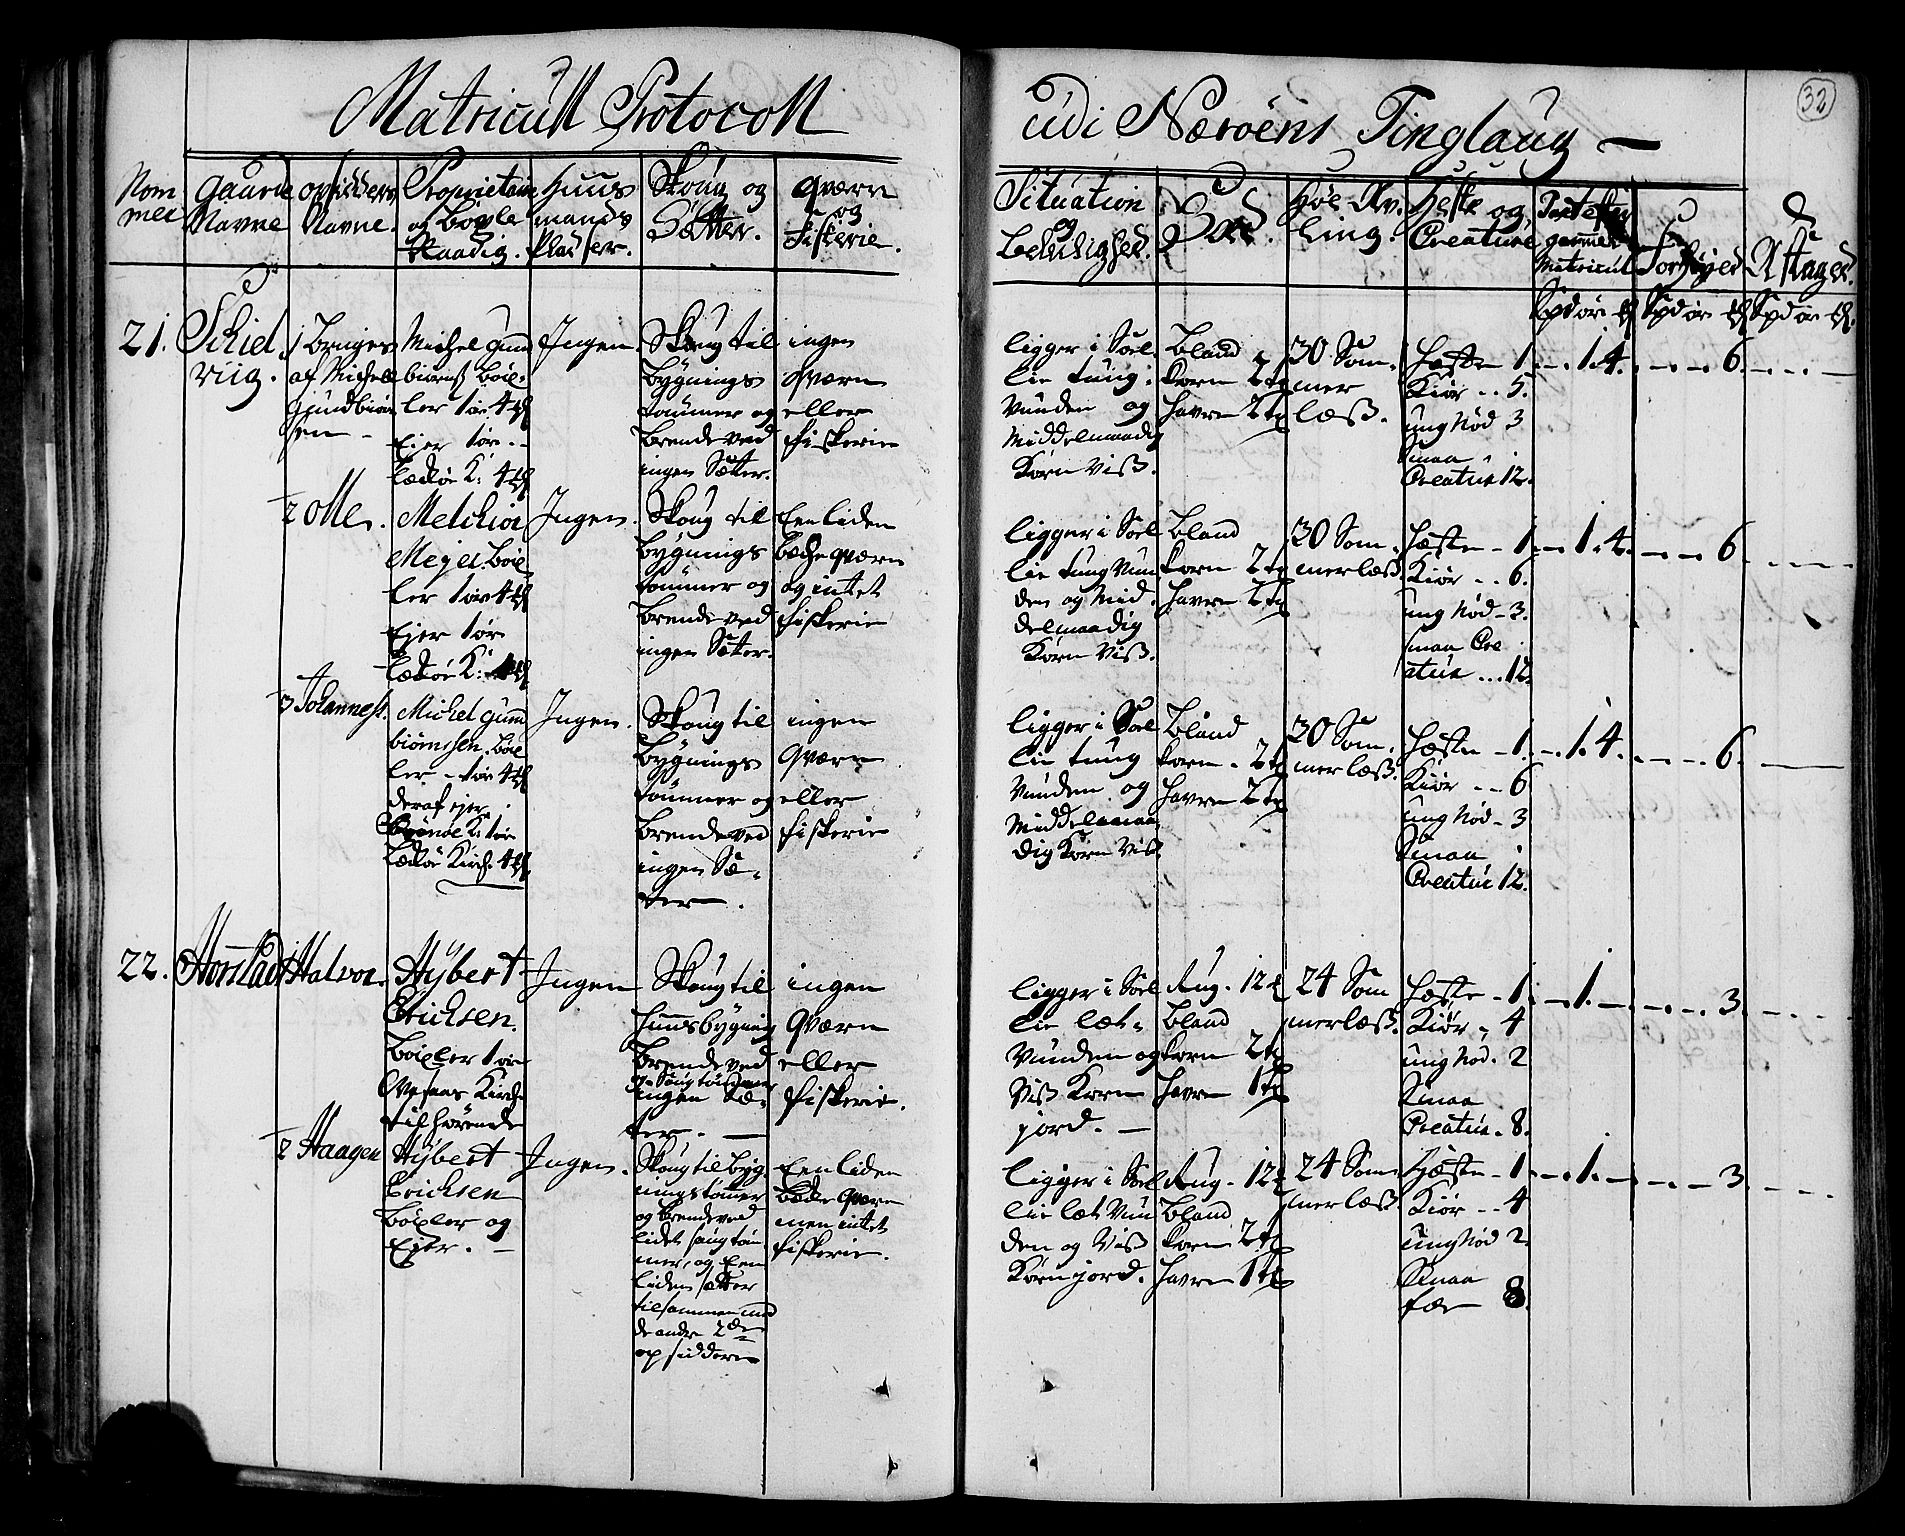 Matricull Protocoll
udi Nærøens Tinglaug —
32
Nom
mer
Gaarde
Navne
opsidders
Navne.
Proprietair
og Böxle
Raadig.
Huus
mands
Pladser.
Skoug og
Sætter.
Qværn
og
Fiskerie.
Situation
og
Beleilighed.
Sæd.
Høe Av.
ling.
Heste og
Creature
gammel
Matricul
Forhøyed
Aftaged.
21. Schiel,
rug.
1 Bruges
af Michell
Gundbiør
sen -
Michel Gun
biørns böx-
ler 1ør 4
Ejer 1ør..
Lækør K: 4
Ingen.
Skoug til
bygnings
tømmer og
brendeved
ingen Sætter.
ingen
Qværn
eller
fiskerie
ligger i Soel
lie tung
Vunden og
Middelmaadig
Korn Viß.
Bland
korn 2 t
havre 2 t
30 Som,
mer
læß.
Hæste 1.
Kiør .. 5.
ung Nød 3
Smaa
Creatur 12.
1. 4.
6.
2 Olle.
Melchior
Mejer böx
ler 1ør 4
Ejer 1ør
Lækør K:
Ingen.
Skoug til
bygnings
tømmer og
brendeved
ingen Sætter.
Een liden
beche qværn
og intet
fiskerie
ligger i Soel
lie tung Vun
den og Mid.
delmaadig
Korn Viß.
Bland
korn 2 t
havre 2 t
30 Som,
mer læß.
Hæste - 1.
Kiør .. 6.
ung Nød - 3.
smaa Cre
atur ... 12.
1. 4.
6
3 Johannes.
Michel Gun
biørnssen. böx
ler - 1ør 4
deraf ejer
K: 1ør
Lækør Kirch 4
Ingen.
Skoug til
bygnings
tømmer og
brendeved
ingen Sæ,
ter.
ingen
Qværn
eller
fiskerie
ligger i Soel
lie tung
Vunden og
Middelmaa,
dig Korn Viß.
Bland
korn - 2 t
havre 2 t
30 Som,
mer læß.
Hæste - 1.
Kiør .. 6
ung Nød - 3
Smaa
Creatur 12.
1. 4.
6.
22. Horstad
1 Halvor.
Hÿbert
Erichsen.
böxler 1ør
Kirche
tilhørende
Ingen
Skoug til
huusbygning
brendeved
ingen Sæ,
ter. —
ingen
Qværn
eller
fiskerie.
ligger i Soel
lie let,
Vunden og
Viß Korn
jord. —
Rug. 12
Bland
korn 2 t
havre 1 t
24 Som
mer læß.
Hæste - 1.
Kiør - 4
ung Nød. 2
Smaa
Creatur. 8.
1.
3.
2 Haagen
Hÿbert
Erichsen
böxler og
Ejer. —
Ingen.
Skoug til byg
ningstømmer
og brendeved
lidet saugtøm
mer, og Een
liden sætter
tilsammen med
de andre 2de
opsiddere
Een liden
beche Qværn
men intet
fiskerie.
ligger i Soel
lie let Vun
den og Viß
Korn jord.
Rug. 12
Bland
korn 2 t
havre 1 t
24 Som,
mer læß
Hæste - 1.
Kiør .. 4
ung Nød 2.
Smaa
fæe 8.
1.
3.